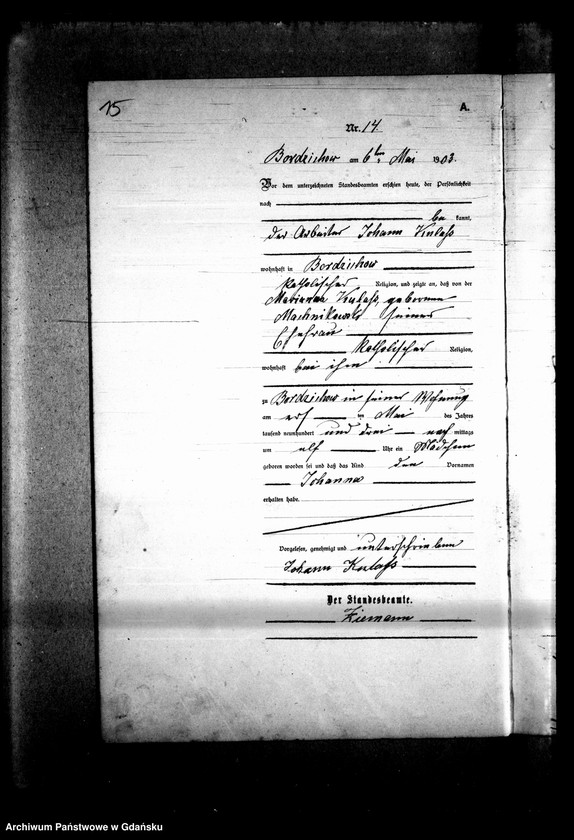 15
A.
Nr. 14
Bordzichow am 6ten Mai 1903.
Vor dem unterzeichneten Standesbeamten erschien heute, der Persönlichkeit
nach
be kannt,
der Arbeiter Johann Kulaß
wohnhaft in Bordzichow
katholischer Religion, und zeigte an, daß von der
Marianna Kulaß, geborenen
seiner
Ehefrau
katholischer Religion,
wohnhaft bei ihm
zu Bordzichow in seiner Wohnung
am im Mai des Jahres
tausend neunhundert und drei nach mittags
um elf Uhr ein Mädchen
geboren worden sei und daß das Kind den Vornamen
Johanna
erhalten habe.
Vorgelesen, genehmigt und unterschrieben
Johann Kulaß
Der Standesbeamte.
Ziemann
Archiwum Państwowe w Gdańsku